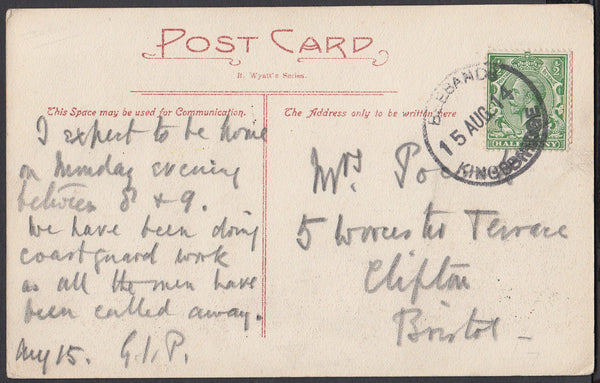 POST CARD
R. Wyatt's Series.
This Space may be used for Communication.
The Address only to be written here
I expect to be home
on Monday evening
between 8 & 9.
We have been doing
coastguard work
as all the men have
been called away.
Aug 15. G.I.P.
Mrs
5 Worcester Terrace
Clifton
Bristol
15 AUG 14
KINGSBRIDGE
HALF PENNY